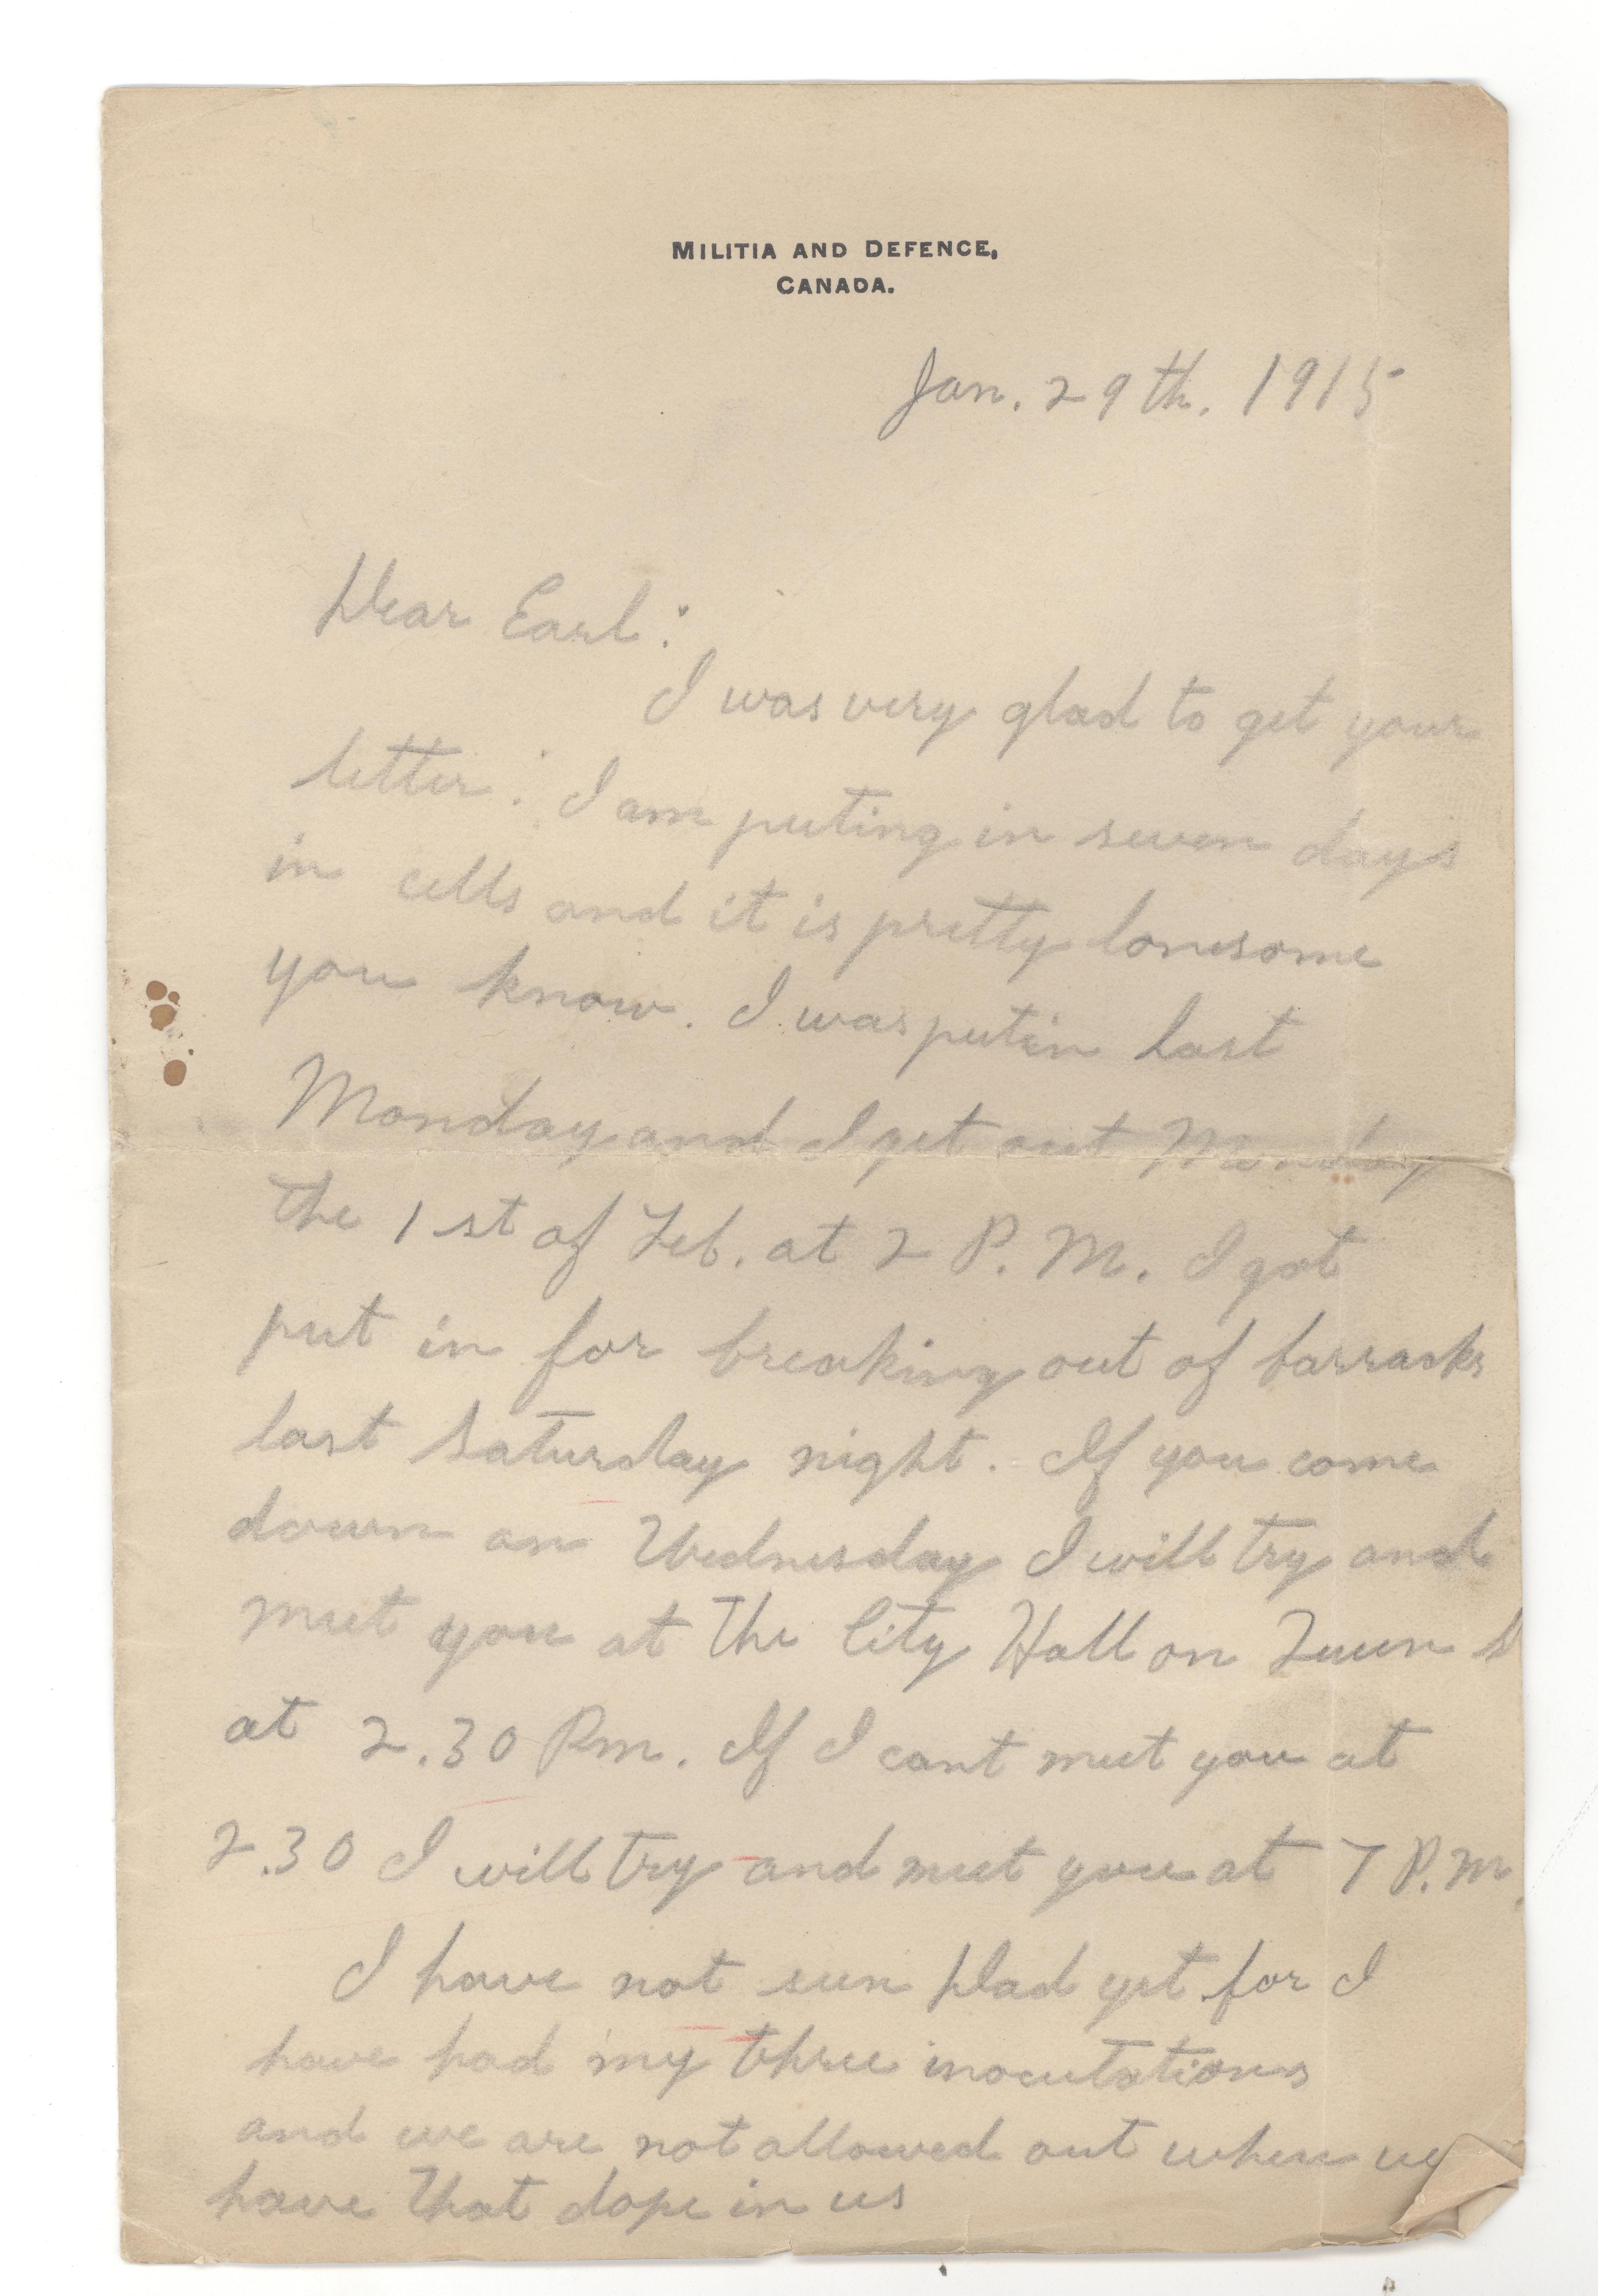 MILITIA AND DEFENCE,
CANADA.
Jan. 29th. 1915
Dear Earl:
I was very glad to get your
letter. I am puting in seven days
in cells and it is pretty lonesome
you know. I was put in last
Monday and I get out Monday
the 1st of Feb. at 2 P.M. I got
put in for breaking out of barracks
last Saturday night. If you come
down on Wednesday I will try and
meet you at the City Hall on Queen S
at 2.30 Pm. If I cant meet you at
2.30 I will try and meet you at 7 P.M.
I have not seen Dad yet for I
have had my three inoculations
and we are not allowed out when we
have that dope in us